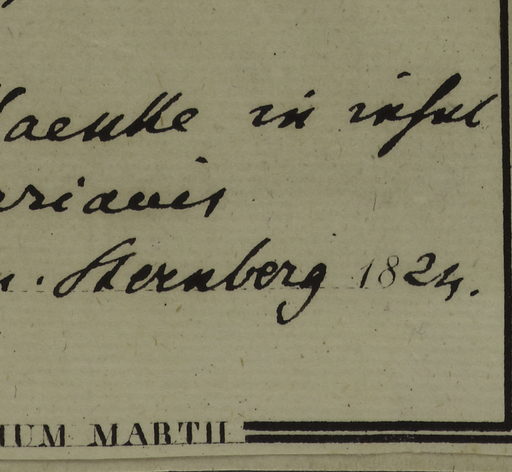 Haenke in insul
arianis
n. Sternberg 1824.
IUM MARTII